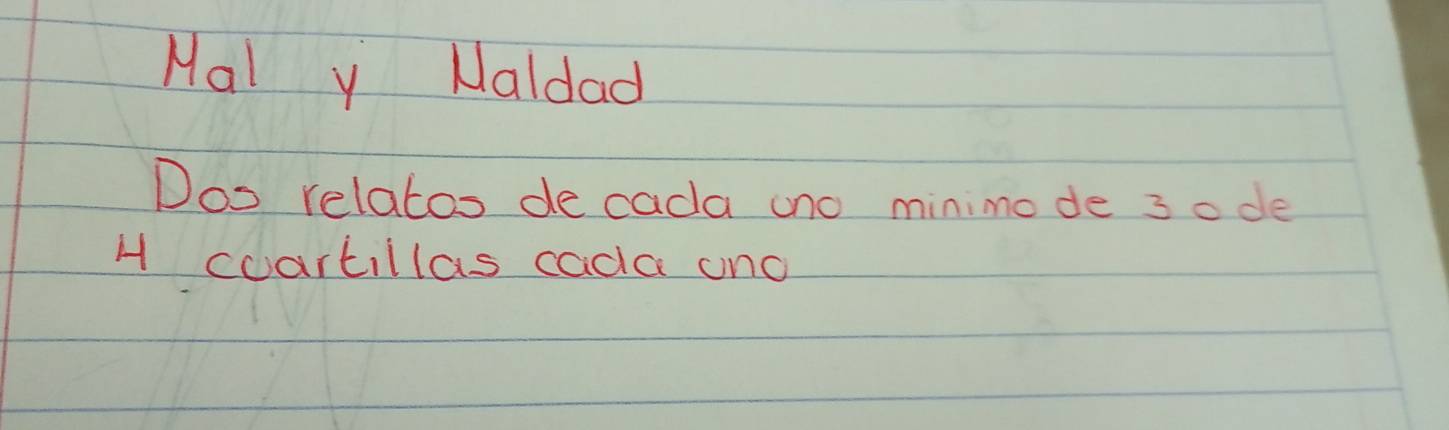 Mal y Maldad
Dos relatos de cada uno minimo de 3 o de
4 cuartillas cada uno